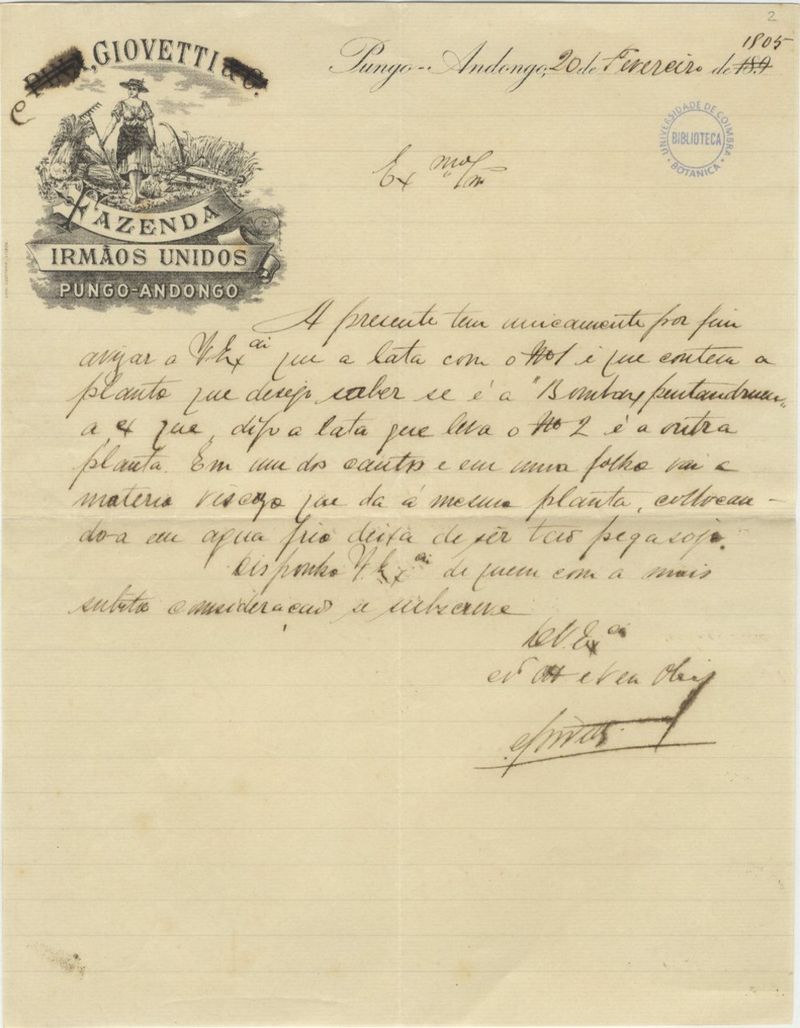 2
GIOVETTI
Pungo-Andongo, 20 de Fevereiro de 189
1805
UNIVERSIDADE DE COIMBRA
BIBLIOTECA
BOTANICA
Ex mo Snr
FAZENDA
IRMÃOS UNIDOS
PUNGO-ANDONGO
A presente tem unicamente por fim
avizar a V. Ex cia que a lata com o Nº 1 é que contem a
planta que desejo saber se é a "Bombax pentandrum"
a que, digo a lata que leva o Nº 2 é a outra
planta. Em um dos cantos e em uma folha vai a
materia viscoza que da á mesma planta, collocan-
do-a em agua fria deixa de ser tão pegasoja.
Disponha V. Ex cia de quem com a mais
subida consideração se subscreve
De V. Ex cia
e Ven
Giovetti